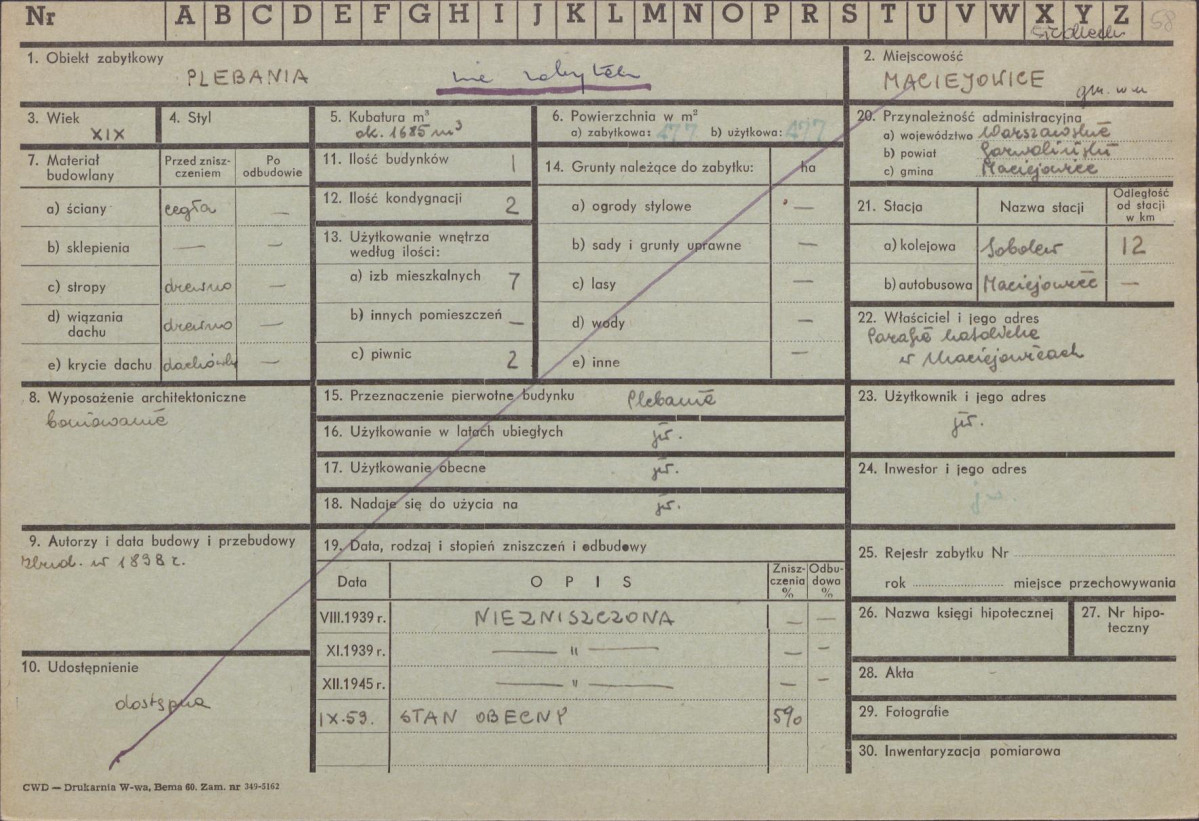 Nr A B C D E F G H I J K L M N O P R S T U V W X Y Z 58
Siedlech
1. Obiekt zabytkowy
PLEBANIA nie zabytek
2. Miejscowość
MACIEJOWICE
gm. w m
3. Wiek
XIX
4. Styl
5. Kubatura m³
ok. 1685 m³
6. Powierzchnia w m²
a) zabytkowa: 477 b) użytkowa: 477
20. Przynależność administracyjna
a) województwo Warszawskie
b) powiat Garwoliński
c) gmina Maciejowice
7. Materiał budowlany
Przed zniszczeniem
Po odbudowie
a) ściany cegła —
b) sklepienia — —
c) stropy drewno —
d) wiązania dachu drewno —
e) krycie dachu dachówka —
11. Ilość budynków 1
12. Ilość kondygnacji 2
13. Użytkowanie wnętrza według ilości:
a) izb mieszkalnych 7
b) innych pomieszczeń —
c) piwnic 2
14. Grunty należące do zabytku: ha
a) ogrody stylowe —
b) sady i grunty uprawne —
c) lasy —
d) wody —
e) inne —
21. Stacja
Nazwa stacji
Odległość od stacji w km
a) kolejowa Sobolew 12
b) autobusowa Maciejowice —
22. Właściciel i jego adres
Parafia katolicka
w Maciejowicach
8. Wyposażenie architektoniczne
boniowanie
15. Przeznaczenie pierwotne budynku Plebania
16. Użytkowanie w latach ubiegłych jw.
17. Użytkowanie obecne jw.
18. Nadaje się do użycia na jw.
23. Użytkownik i jego adres
jw.
24. Inwestor i jego adres
jw.
9. Autorzy i data budowy i przebudowy
Zbud. w 1898 r.
10. Udostępnienie
dostępna
19. Data, rodzaj i stopień zniszczeń i odbudowy
Data OPIS Zniszczenia % Odbudowa %
VIII.1939 r. NIEZNISZCZONA — —
XI.1939 r. — " — — —
XII.1945 r. — " — — —
IX.59. STAN OBECNY 5%
25. Rejestr zabytku Nr
rok miejsce przechowywania
26. Nazwa księgi hipotecznej
27. Nr hipoteczny
28. Akta
29. Fotografie
30. Inwentaryzacja pomiarowa
CWD — Drukarnia W-wa, Bema 60. Zam. nr 349-5162